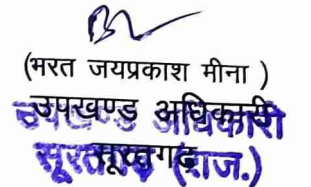 (भरत जयप्रकाश मीना )
उपखण्ड अधिकारी
सूरतगढ़
उपखण्ड अधिकारी
सूरतगढ़ (राज.)